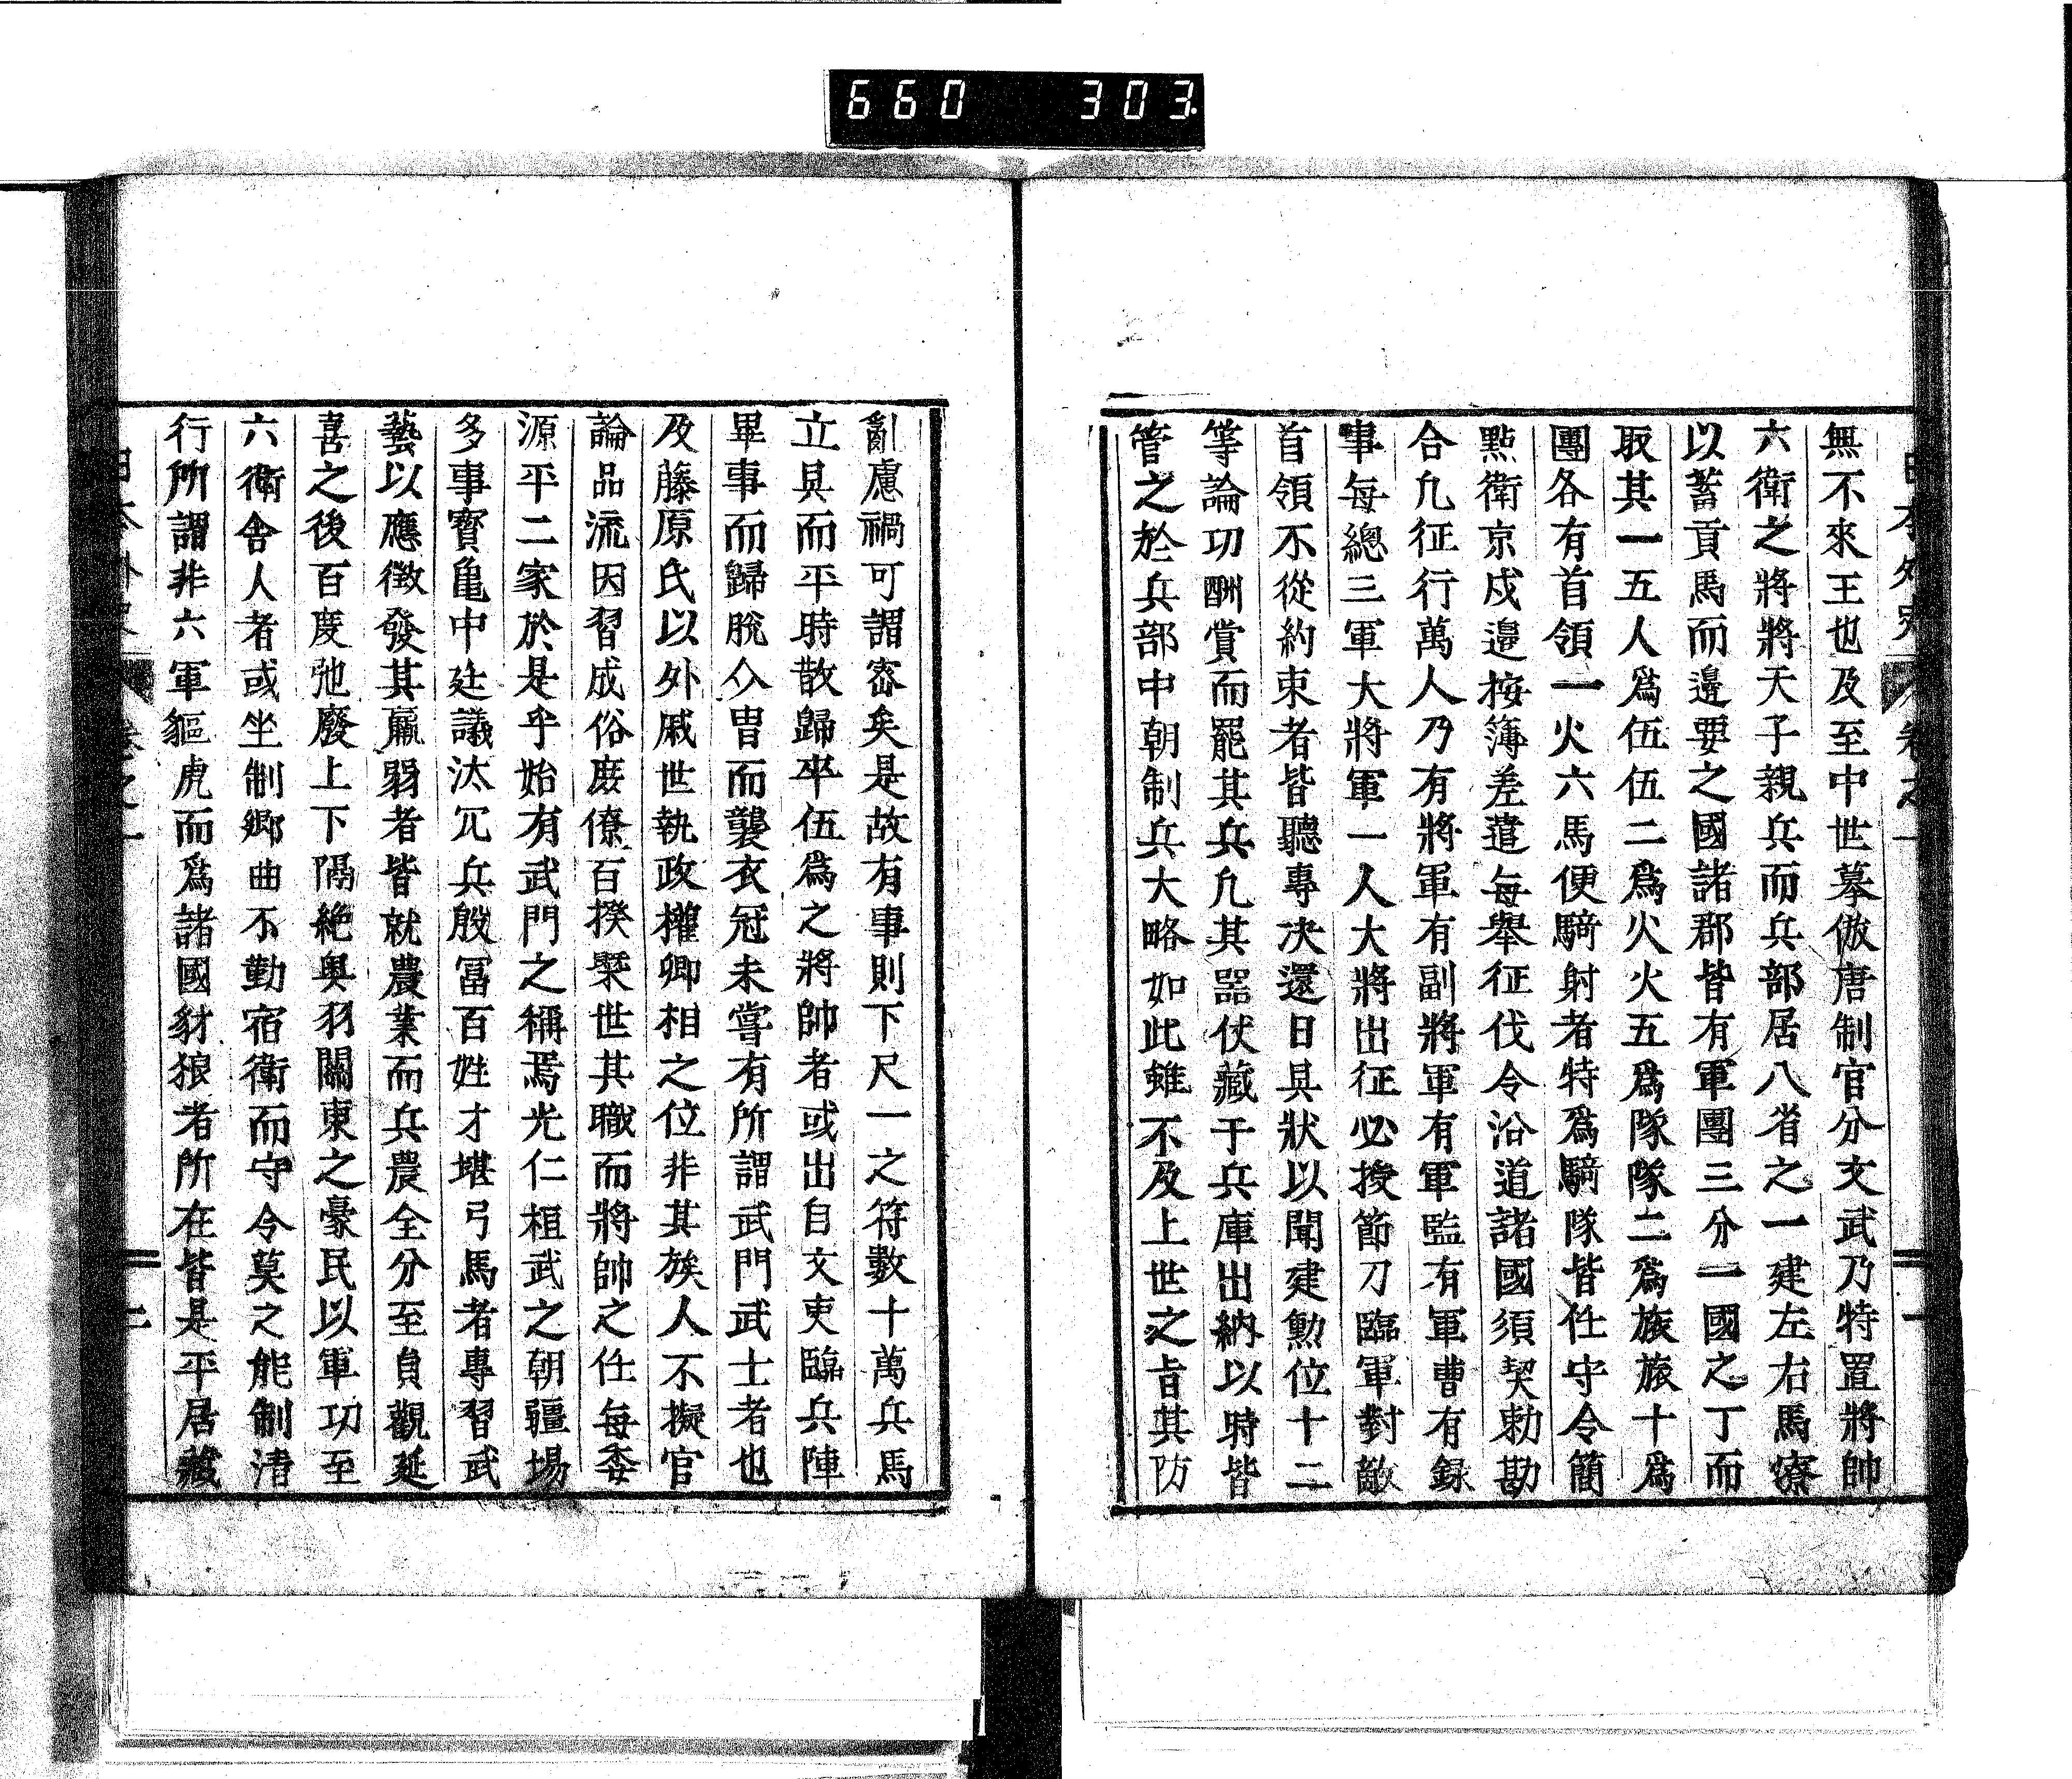 660 303
無不來王也及至中世摹倣唐制官分文武乃特置將帥
六衛之將將天子親兵而兵部居八省之一建左右馬寮
以蓄貢馬而邊要之國諸郡皆有軍團三分一國之丁而
取其一五人爲伍伍二爲火火五爲隊隊二爲旅旅十爲
團各有首領一火六馬便騎射者特爲騎隊皆任守令簡
點衛京戍邊按簿差遣每舉征伐令沿道諸國須契勅勘
合凡征行萬人乃有將軍有副將軍有軍監有軍曹有錄
事每總三軍大將軍一人大將出征必授節刀臨軍對敵
首領不從約束者皆聽專決還日具狀以聞建勳位十二
等論功酬賞而罷其兵凡其器仗藏于兵庫出納以時皆
管之於兵部中朝制兵大略如此雖不及上世之旨其防
亂慮禍可謂密矣是故有事則下尺一之符數十萬兵馬
立具而平時散歸卒伍爲之將帥者或出自文吏臨兵陣
畢事而歸脫介冑而襲衣冠未嘗有所謂武門武士者也
及藤原氏以外戚世執政權卿相之位非其族人不擬官
論品流因習成俗庶僚百揆槩世其職而將帥之任每委
源平二家於是乎始有武門之稱焉光仁桓武之朝疆場
多事寶亀中廷議汰冗兵殷富百姓才堪弓馬者專習武
藝以應徵發其羸弱者皆就農業而兵農全分至貞觀延
喜之後百度弛廢上下隔絶奥羽關東之豪民以軍功至
六衛舍人者或坐制鄉曲不勤宿衛而守令莫之能制淸
行所謂非六軍貙虎而爲諸國豺狼者所在皆是平居藏
日本外史 卷之一 二